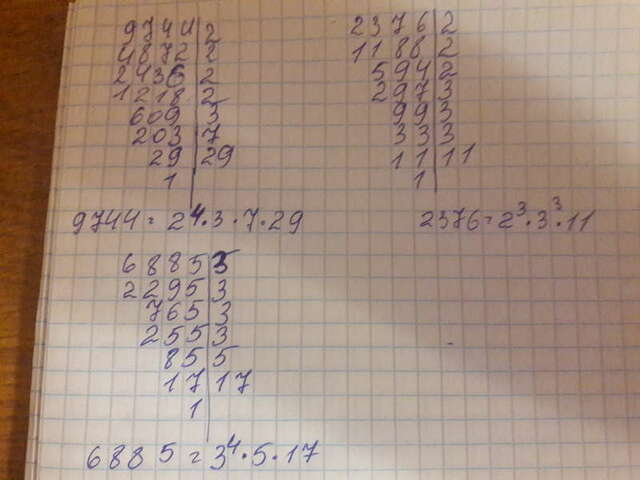 9744|2
4872|2
2436|2
1218|2
609|3
203|7
29|29
1|
9744=2⁴·3·7·29
2376|2
1188|2
594|2
297|3
99|3
33|3
11|11
1|
2376=2³·3³·11
6885|3
2295|3
765|3
255|3
85|5
17|17
1|
6885=3⁴·5·17